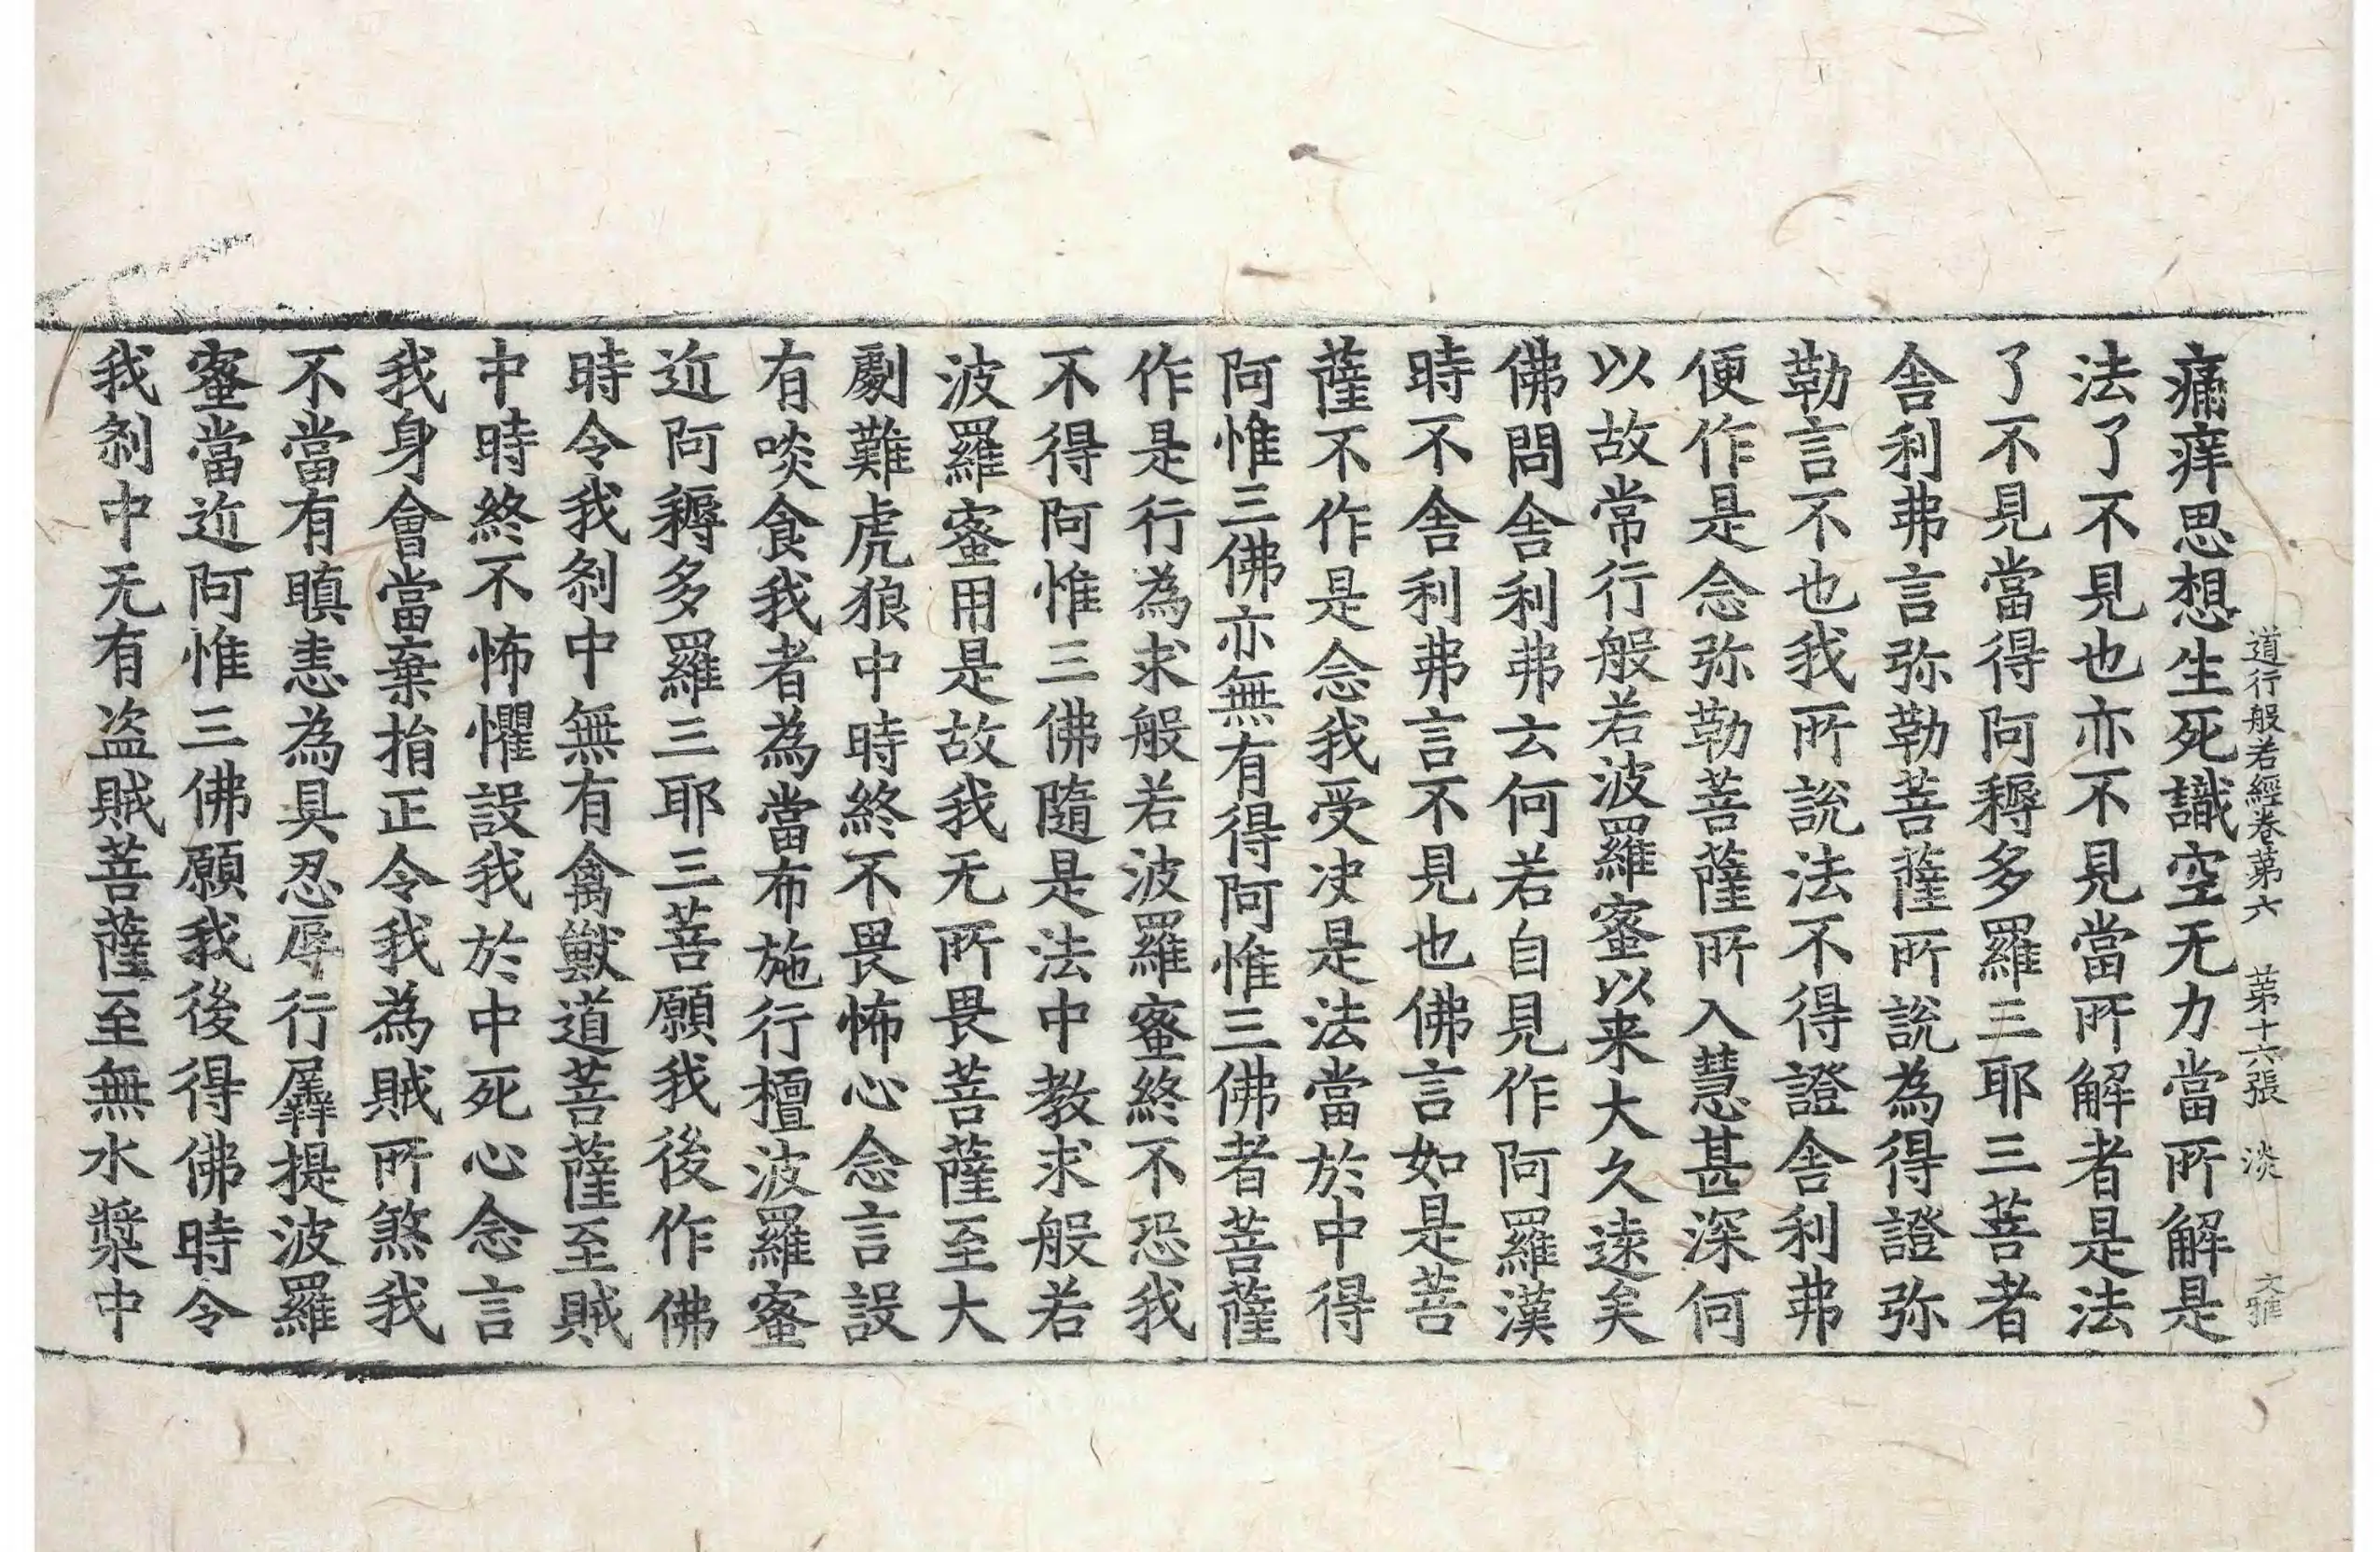 道行般若經卷第六 第十六張 淡 文雅
痛痒思想生死識空无力當所解是
法了不見也亦不見當所解者是法
了不見當得阿耨多羅三耶三菩者
舍利弗言弥勒菩薩所說為得證弥
勒言不也我所說法不得證舍利弗
便作是念弥勒菩薩所入慧甚深何
以故常行般若波羅蜜以来大久遠矣
佛問舍利弗云何若自見作阿羅漢
時不舍利弗言不見也佛言如是菩
薩不作是念我受决是法當於中得
阿惟三佛亦無有得阿惟三佛者菩薩
作是行為求般若波羅蜜終不恐我
不得阿惟三佛隨是法中教求般若
波羅蜜用是故我无所畏菩薩至大
劇難虎狼中時終不畏怖心念言設
有啖食我者為當布施行檀波羅蜜
近阿耨多羅三耶三菩願我後作佛
時令我剎中無有禽獸道菩薩至賊
中時終不怖懼設我於中死心念言
我身會當棄捐正令我為賊所煞我
不當有瞋恚為具忍辱行羼提波羅
蜜當近阿惟三佛願我後得佛時令
我剎中无有盗賊菩薩至無水漿中